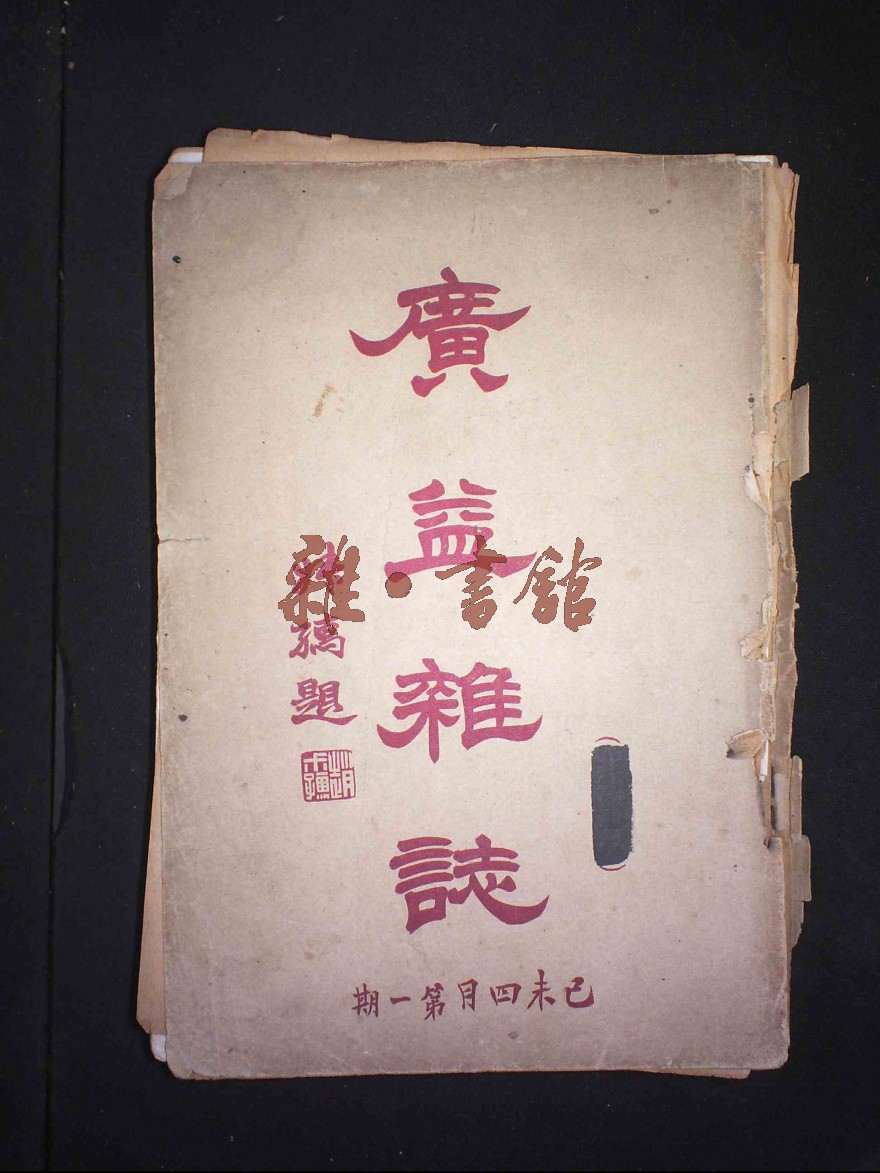 廣益雜誌
題
己未四月第一期
雜·書館